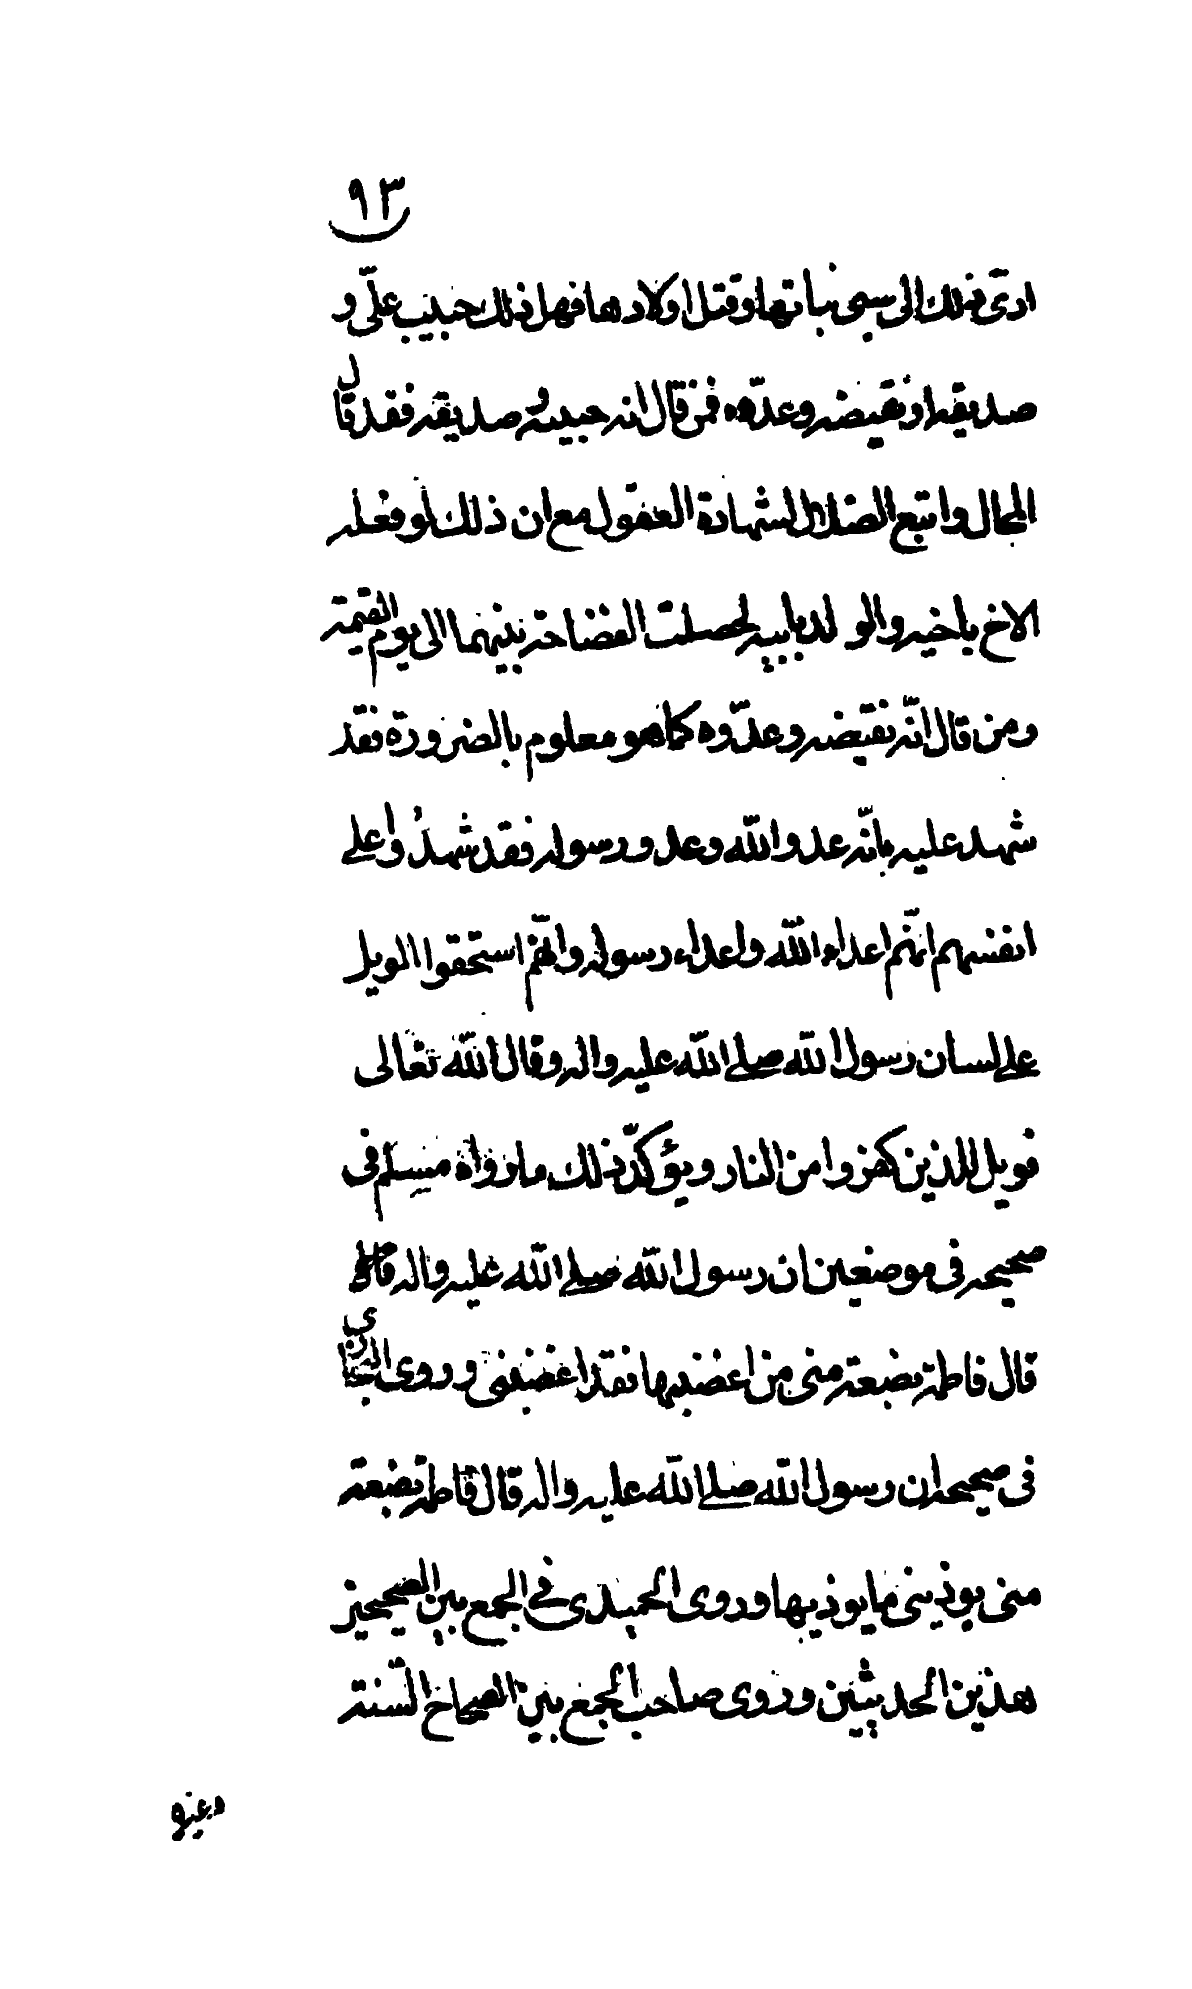 ٩٣
ادّى ذلك الى سبى نباتها وقتل اولادها فهل ذلك حبيب علىّ و
صديقه او نقيضه وعدّوه فمن قال انه حبيبه وصديقه فقد قال
المحال واتبع الضلال لشهادة العقول مع ان ذلك لو فعله
الاخ باخيه والولد بابيه لحصلت الفضاحة بينهما الى يوم القيمة
ومن قال انّه نقيضه وعدّوه كما هو معلوم بالضرورة فقد
شهد عليه بانّه عدو الله وعدو رسوله فقد شهدوا على
انفسهم انّهم اعداء الله واعداء رسوله وانّهم استحقوا الويل
على لسان رسول الله صلى الله عليه واله وقال الله تعالى
فويل للذين كفروا من النار ويؤكّد ذلك ما رواه مسلم فى
صحيحه فى موضعين ان رسول الله صلى الله عليه واله
قال فاطمة بضعة منى من اغضبها فقد اغضبنى وروى البخارى
فى صحيحه ان رسول الله صلى الله عليه واله قال فاطمة بضعة
منى يوذينى ما يوذيها وروى الحميدى فى الجمع بين الصحيحين
هذين الحديثين وروى صاحب الجمع بين الصحاح الستة
وغيره